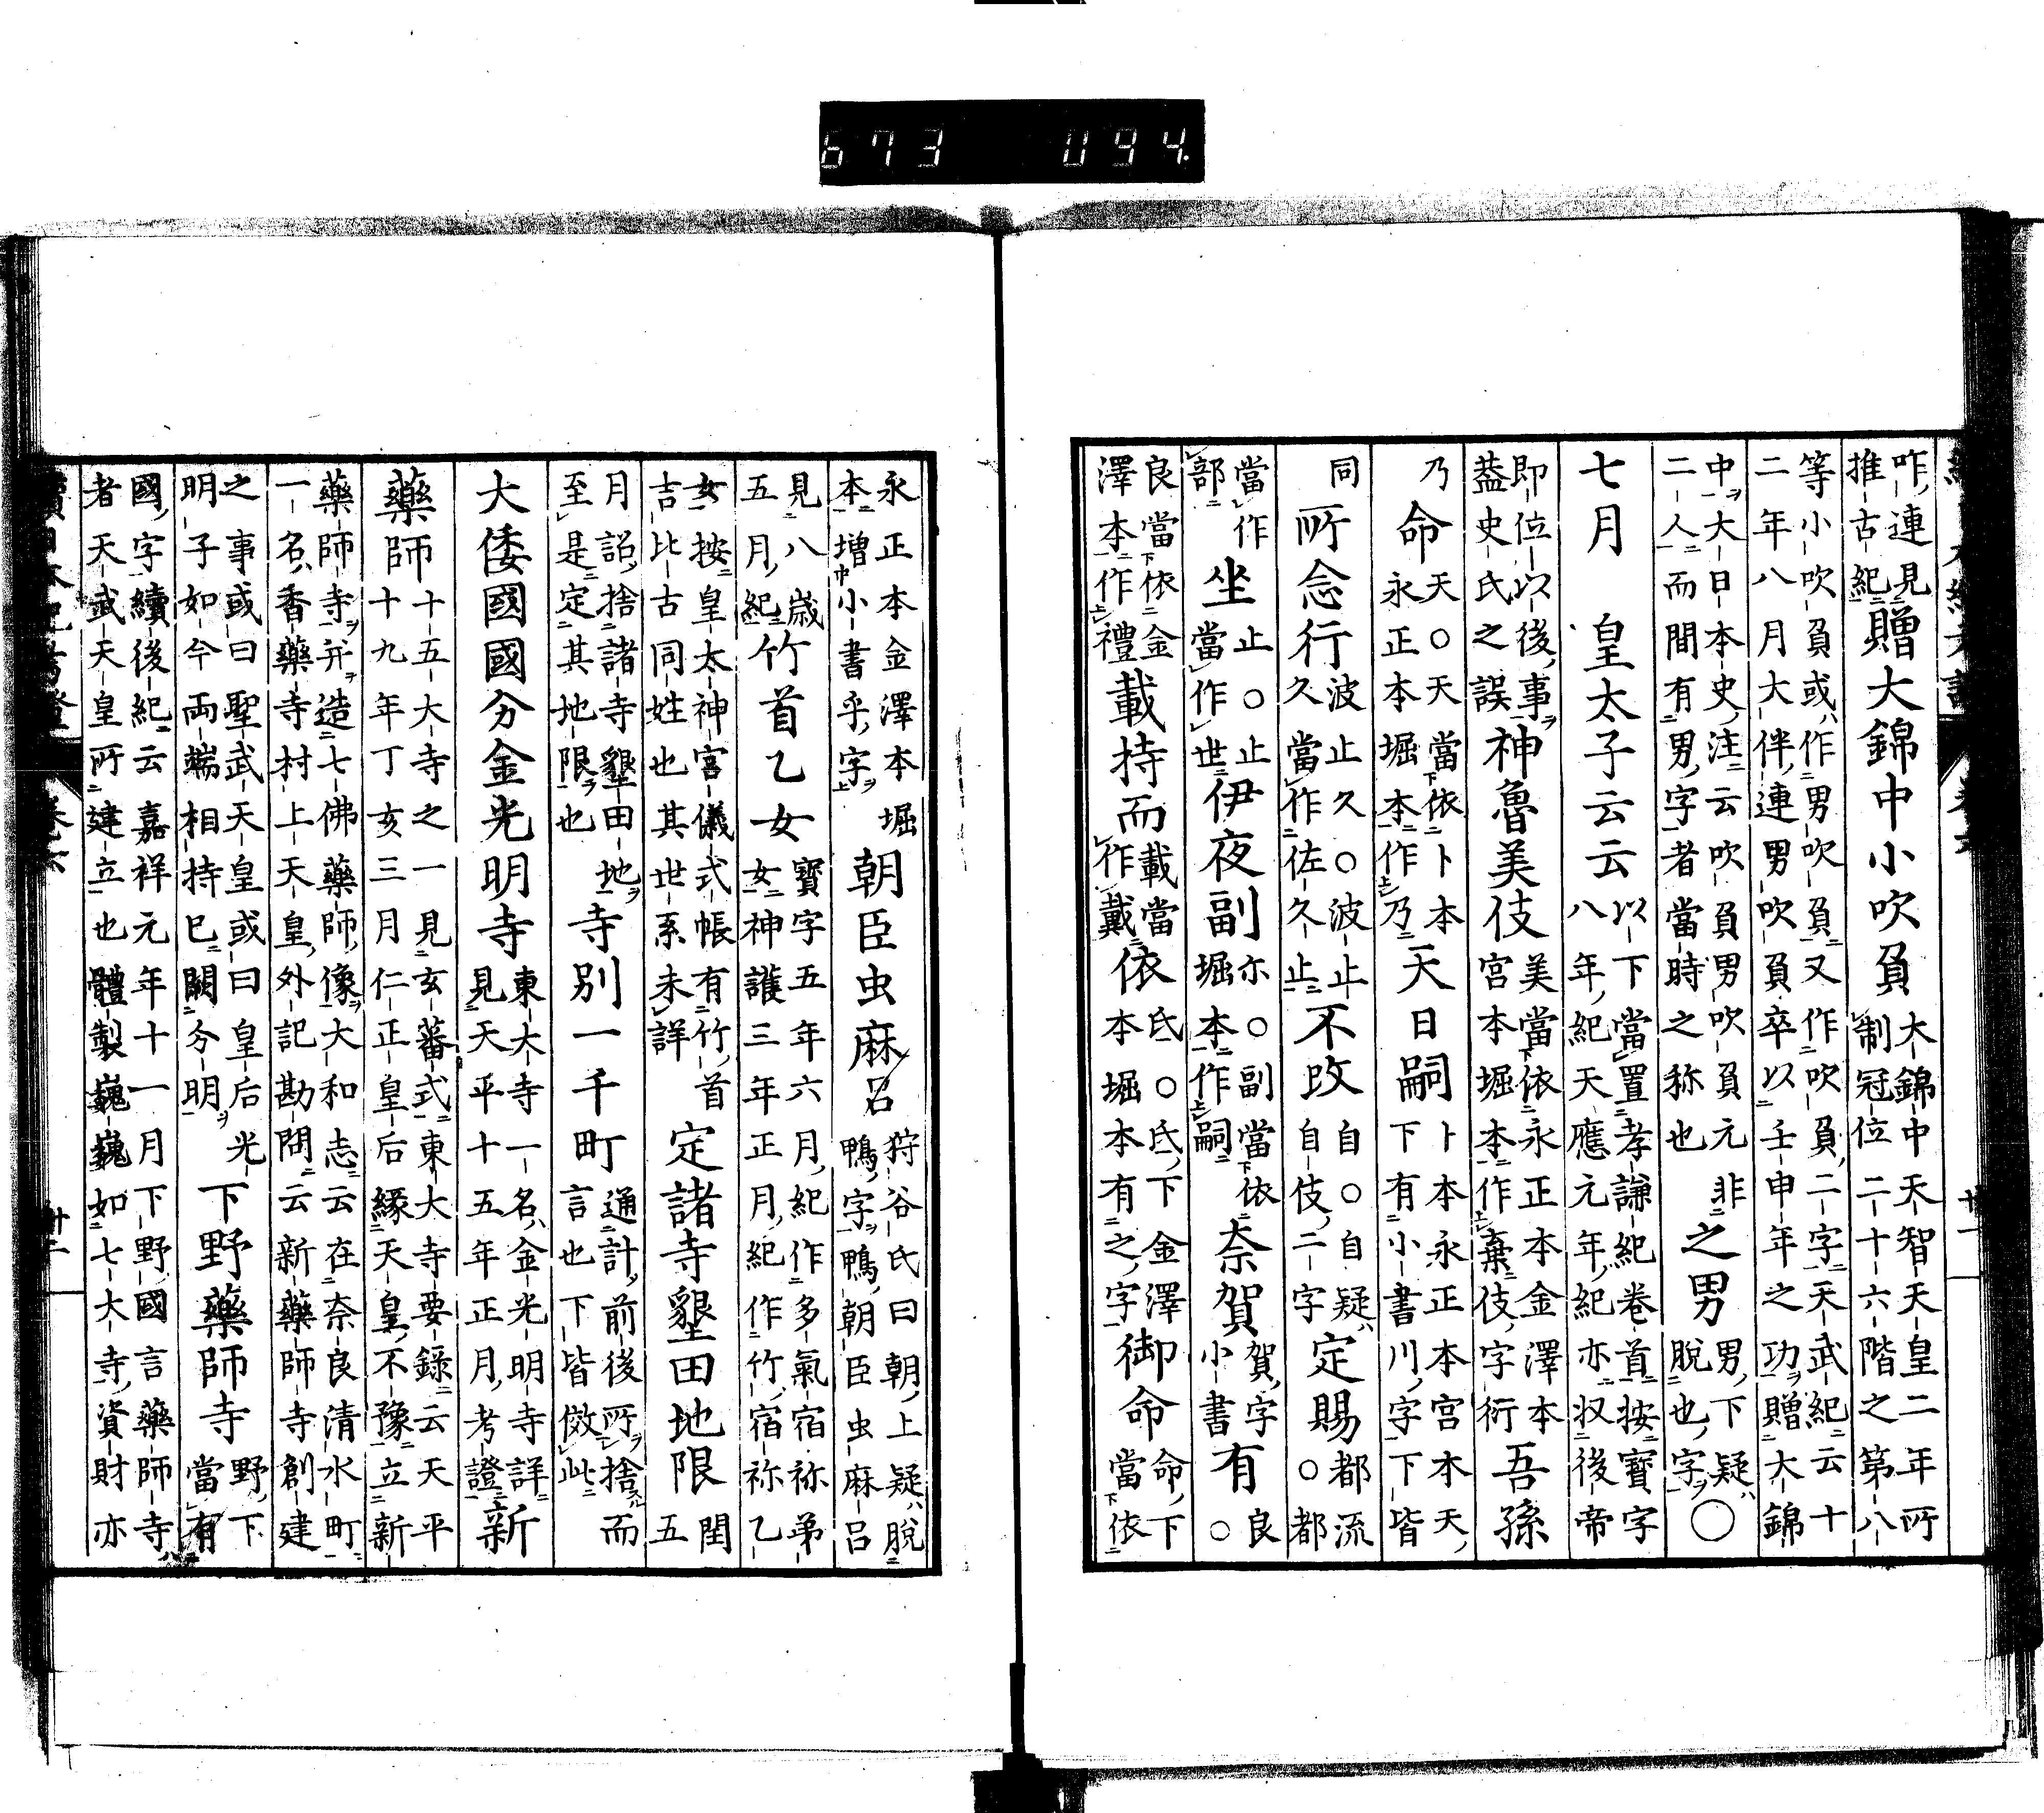 咋連見推古紀贈大錦中小吹負大錦中天智天皇二年所制冠位二十六階之第八
等小吹負或作男吹負又作吹負二字天武紀云十二年八月大伴連男吹負卒以壬申年之功贈大錦
中大日本史注云吹負男吹負元非二人而間有男字者當時之称也之男男下疑脫也字○
七月 皇太子云云以下當置孝謙紀卷首按寶字八年紀天應元年紀亦収後帝
即位以後事葢史氏之誤神魯美伎美當依永正本金澤本宮本堀本作棄伎字衍吾孫
乃命天○天當依卜本永正本堀本作乃天日嗣卜本永正本宮本天下有小書川字下皆
同所念行波止久○波止久當作佐久止不改自○自疑自伎二字定賜都流○都
當作部坐止○止當作世伊夜副亦○副當依堀本作嗣奈賀賀字小書有良○
良當依金澤本作禮載持而載當作戴依氐○氐下金澤本堀本有之字御命命下當依
永正本金澤本堀本增小書乎字朝臣虫麻呂狩谷氏曰朝上疑脫鴨字鴨朝臣虫麻呂
見八歳五月紀竹首乙女寶字五年六月紀作多氣宿祢弟女神護三年正月紀作竹宿祢乙
女按皇太神宮儀式帳有竹首吉比古同姓也其世系未詳定諸寺墾田地限閏五
月詔捨諸寺墾田地至是定其地限也寺別一千町通計前後所捨而言也下皆倣此
大倭國國分金光明寺東大寺一名金光明寺詳見天平十五年正月考證新
藥師十五大寺之一見玄蕃式東大寺要錄云天平十九年丁亥三月仁正皇后縁天皇不豫立新
藥師寺并造七佛藥師像大和志云在奈良清水町一名香藥寺村上天皇外記勘問云新藥師寺創建
之事或曰聖武天皇或曰皇后光明子如今両端相持已闕分明下野藥師寺野下當有
國字續後紀云嘉祥元年十一月下野國言藥師寺者天武天皇所建立也體製巍巍如七大寺資財亦
673 094.